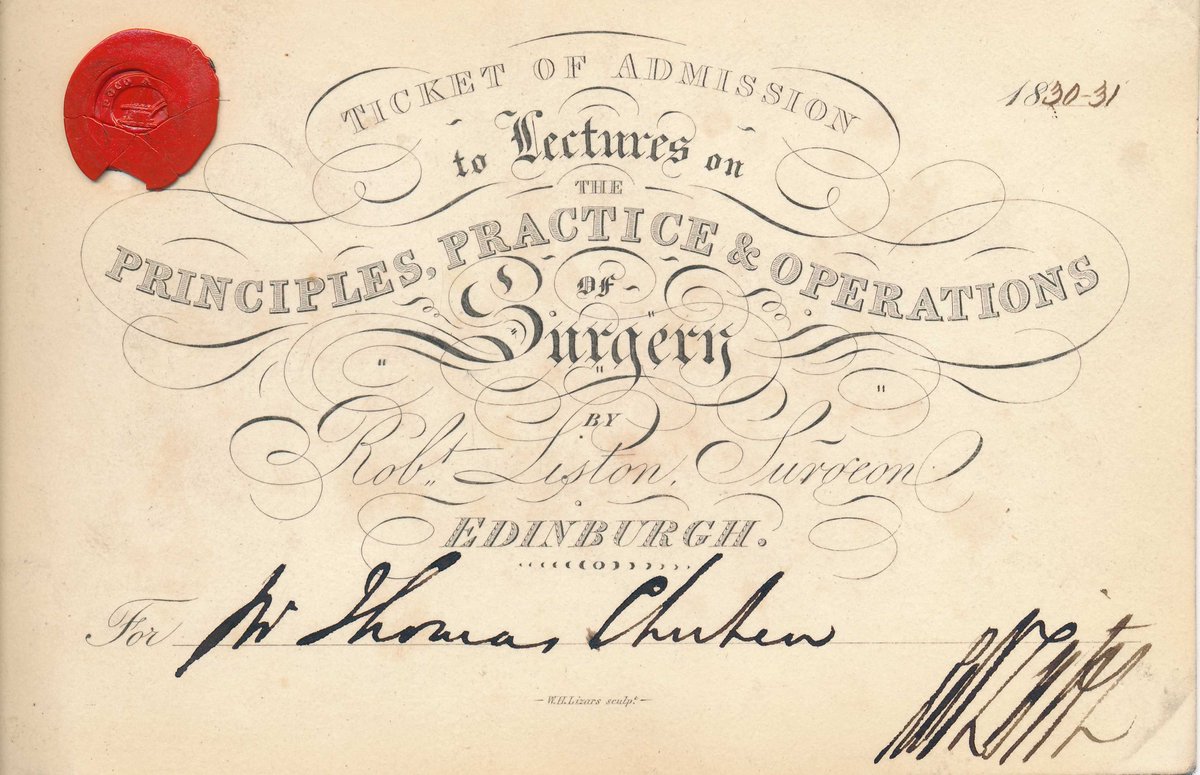 1830-31
TICKET OF ADMISSION
to Lectures on
THE
PRINCIPLES, PRACTICE & OPERATIONS
OF
Surgery
BY
Robt. Liston, Surgeon
EDINBURGH.
For Mr Thomas
W.H. Lizars sculpt.